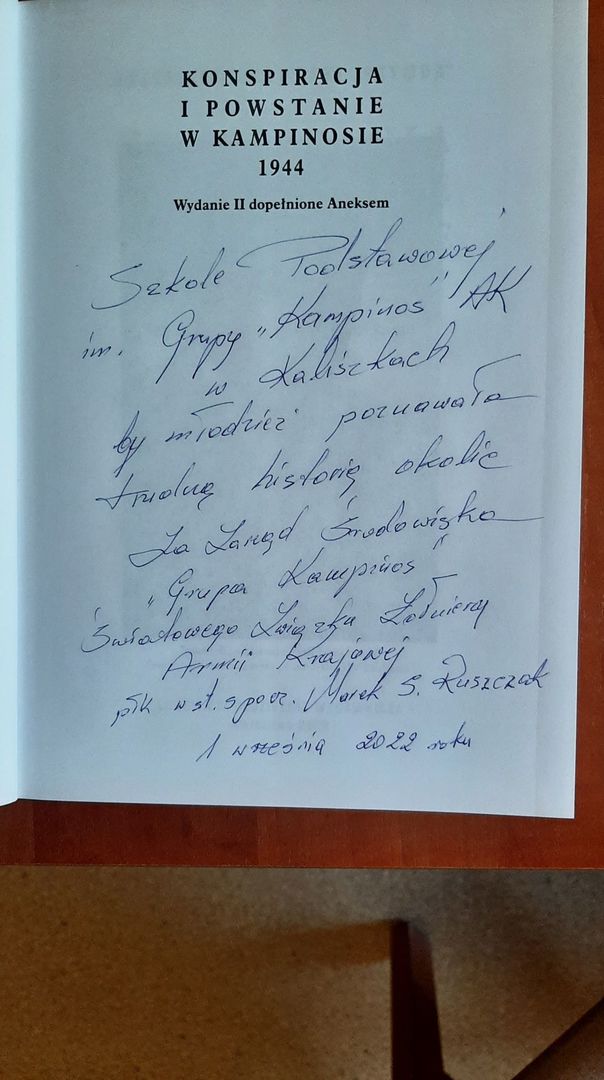 KONSPIRACJA
I POWSTANIE
W KAMPINOSIE
1944
Wydanie II dopełnione Aneksem
Szkole Podstawowej
im. Grupy „Kampinos" AK
w Kaliszkach
by młodzież poznawała
trudną historię okolic
Za Zarząd Środowiska
„Grupa Kampinos"
Światowego Związku Żołnierzy
Armii Krajowej
płk w st. spocz. Marek S. Ruszczak
1 września 2022 roku